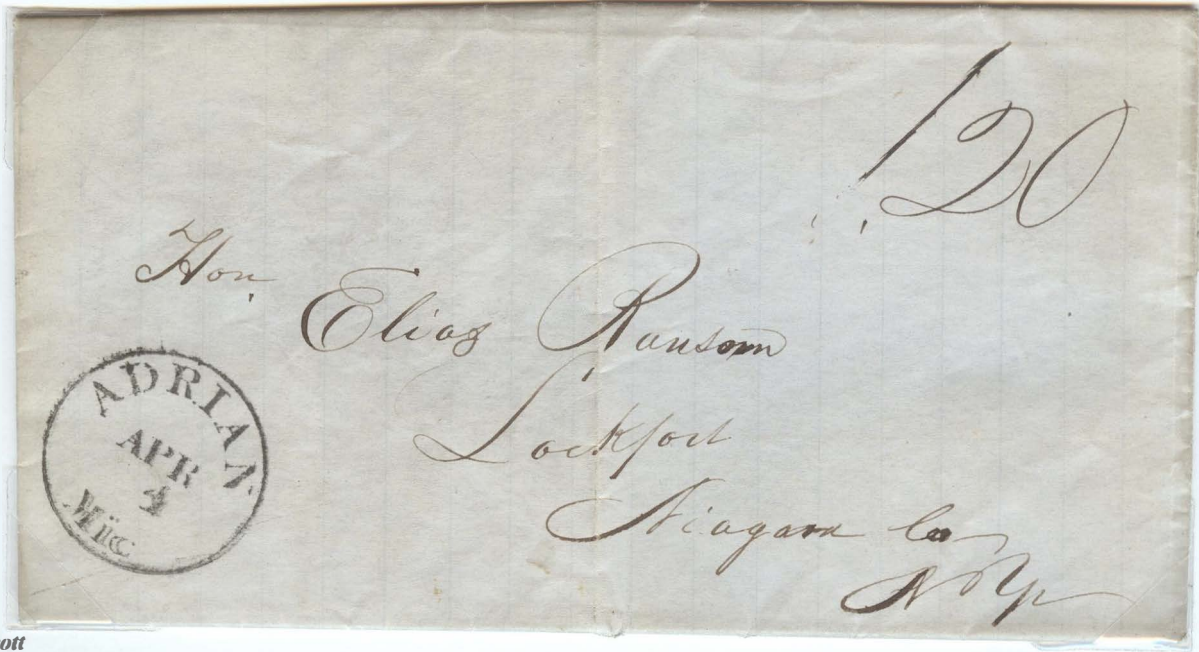 120
Hon.
Elias Ransom
Lockport
Niagara Co
N Y
ADRIAN
APR
4
Mic
ott